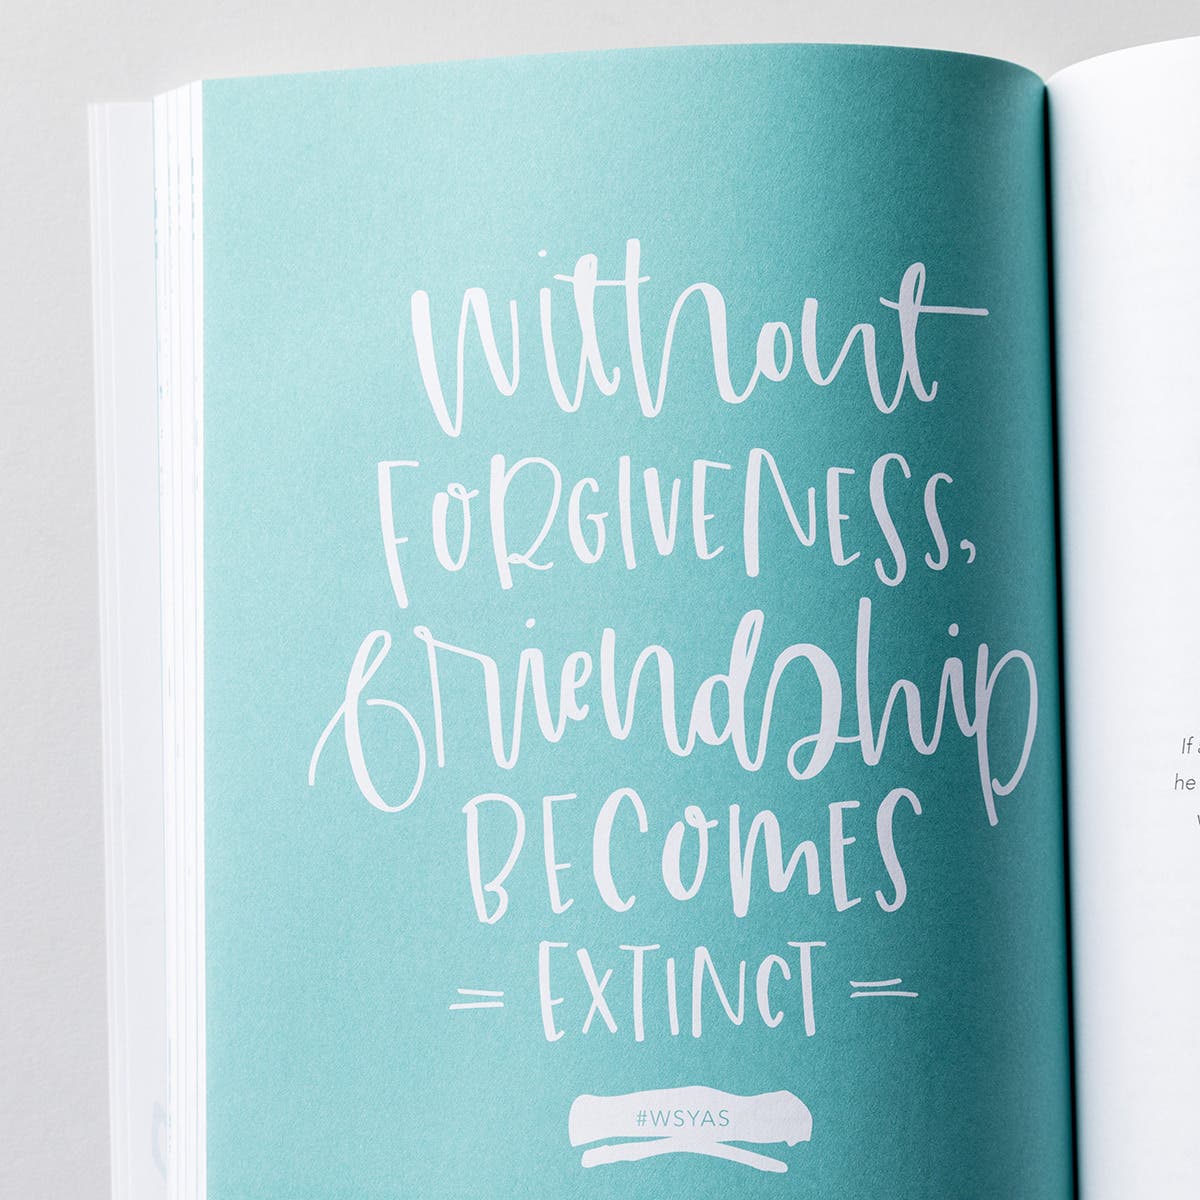 without
FORGIVENESS,
friendship
BECOMES
= EXTINCT =
#WSYAS
If
he